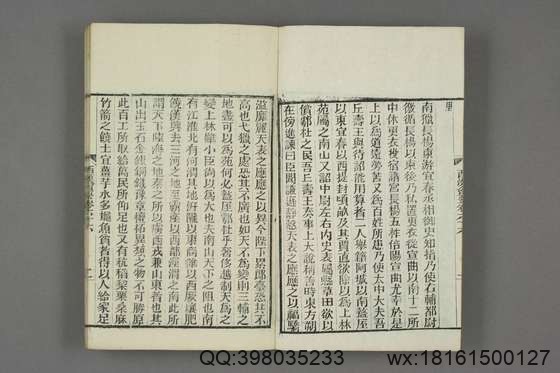 南獵長楊東游宜春丞相御史知指乃使右輔都尉
徼循長楊以東後乃私置更衣從宣曲以南十二所
中休更衣投宿諸宮長楊五柞倍陽宣曲尤幸於是
上以爲道遠勞苦又爲百姓所患乃使太中大夫吾
丘壽王與待詔能用算者二人舉籍阿城以南盩厔
以東宜春以西提封頃畝及其賈直欲除以爲上林
苑屬之南山又詔中尉左右內史表屬縣草田欲以
償鄠杜之民吾丘壽王奏事上大說稱善時東方朔
在傍進諫曰臣聞謙遜靜愨天表之應應之以福驕
溢靡麗天表之應應之以異今陛下累郎臺恐其不
高也弋獵之處恐其不廣也如天不爲變則三輔之
地盡可以爲苑何必盩厔鄠杜乎奢侈越制天爲之
變上林雖小臣尚以爲大也夫南山天下之阻也南
有江淮北有河渭其地從汧隴以東商雒以西厥壤肥
饒漢興去三河之地至霸產以西都涇渭之南此所
謂天下陸海之地秦之所以虜西戎兼山東者也其
山出玉石金銀銅鐵豫章檀柘異類之物不可勝原
此百工所取給萬民所仰足也又有秔稻棃栗桑麻
竹箭之饒土宜薑芋水多䵷魚貧者得以人給家足
QQ:398035233
wx:18161500127